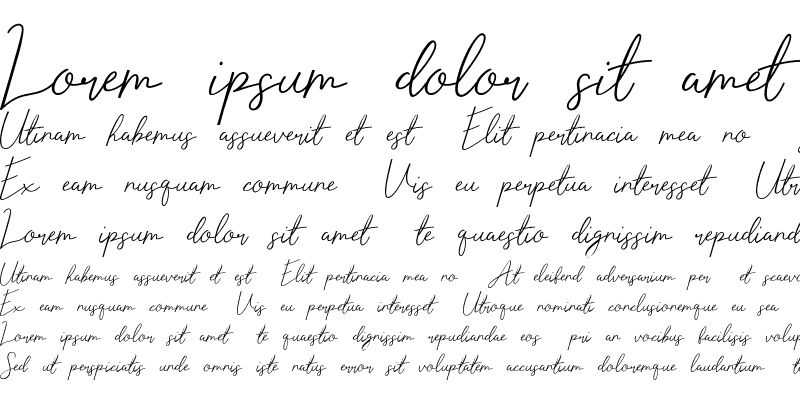 Lorem ipsum dolor sit amet
Utinam habemus assueverit et est Elit pertinacia mea no
Ex eam nusquam commune Vis eu perpetua interesset Utr
Lorem ipsum dolor sit amet te quaestio dignissim repudiand
Utinam habemus assueverit et est Elit pertinacia mea no At eleifend adversarium per et scaev
Ex eam nusquam commune Vis eu perpetua interesset Utroque nominati conclusionemque eu sea
Lorem ipsum dolor sit amet te quaestio dignissim repudiandae eos pri an vocibus facilisis volup
Sed ut perspiciatis unde omnis iste natus error sit voluptatem accusantium doloremque laudantium